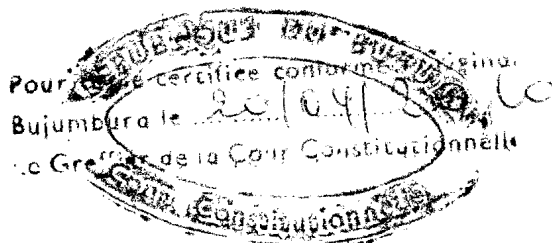 REPUBLIQUE DU BURUNDI
Pour certifiée conforme
Bujumbura le 20/04/
Le Greffier de la Cour Constitutionnelle
Cour Constitutionnelle